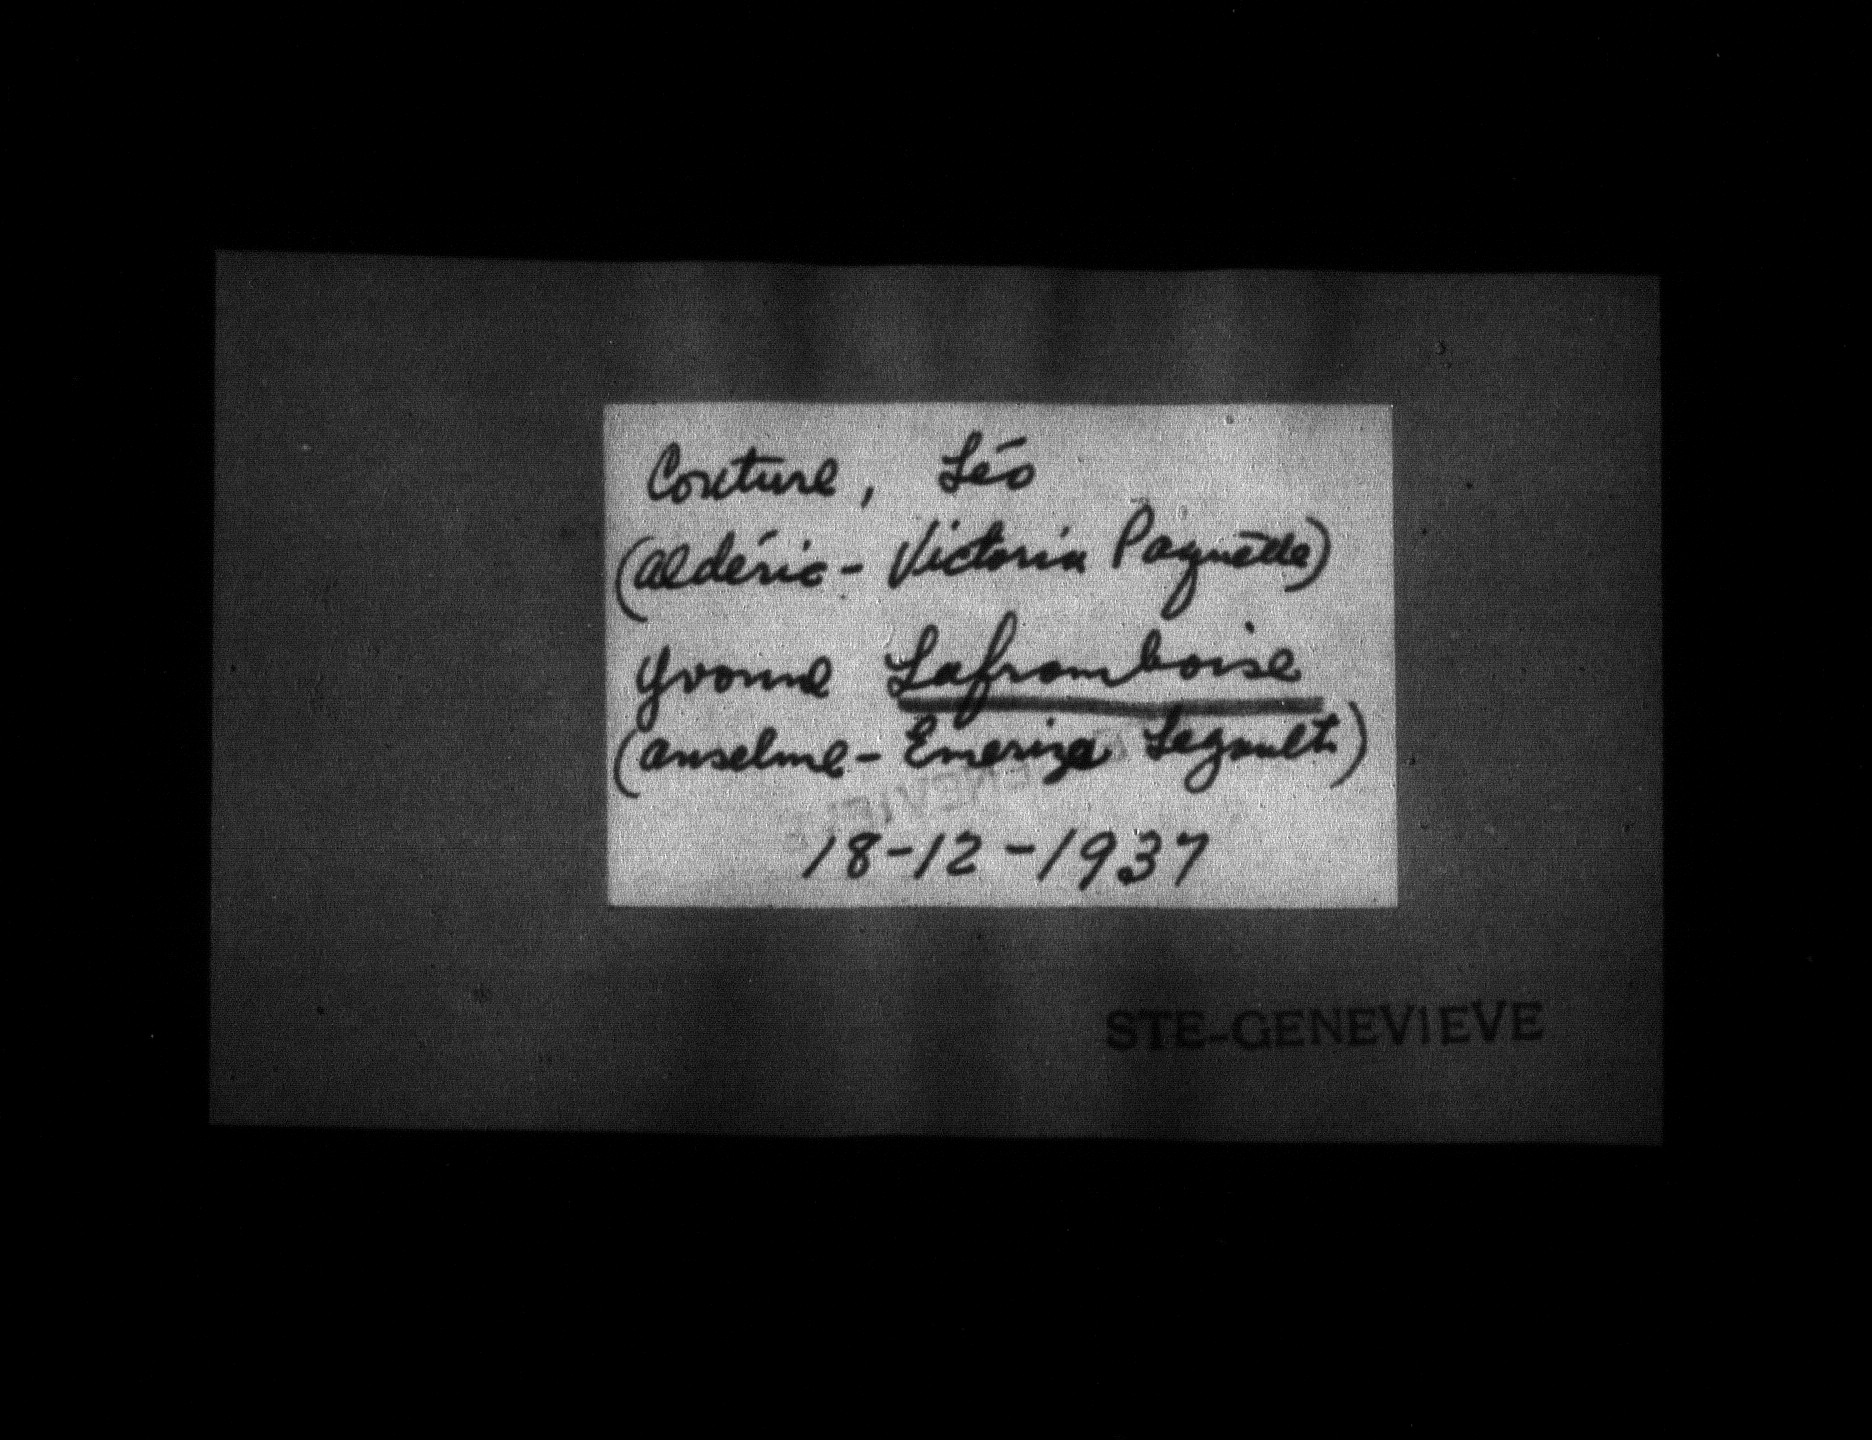 Couture, Léo
(Aldéric - Victoria Paquette)
Yvonne Laframboise
(Anselme - Emeriza Legault)
18-12-1937
STE-GENEVIEVE